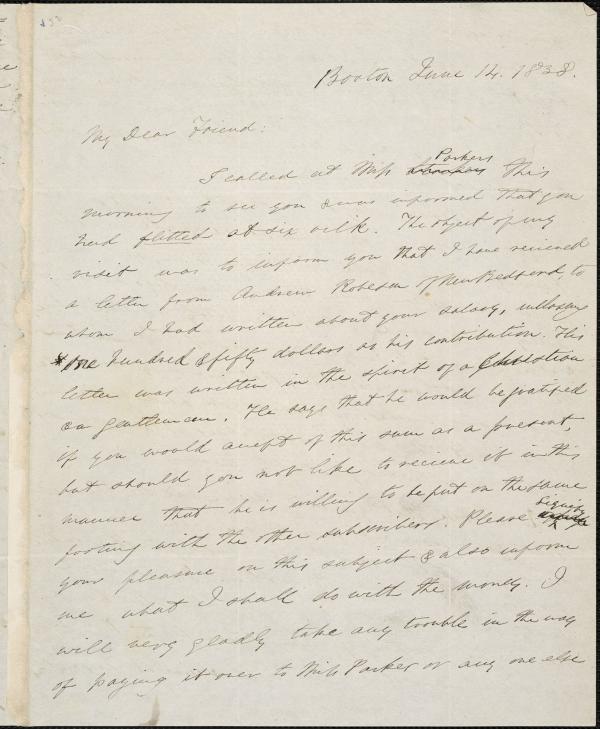 Boston June 14. 1838.
My Dear Friend:
I called at Miss Parkers this
morning to see you & was informed that you
had flitted at six oclk. The object of my
visit was to inform you that I have recieved
a letter from Andrew Robeson of New Bedford, to
whom I had written about your salary, inclosing
* one hundred & fifty dollars as his contribution. His
letter was written in the spirit of a Christian
& a gentleman. He says that he would be gratified
if you would accept of this sum as a present,
but should you not like to recieve it in this
manner that he is willing to be put on the same
footing with the other subscribers. Please signify
your pleasure on this subject & also inform
me what I shall do with the money. I
will very gladly take any trouble in the way
of paying it over to Miss Parker or any one else